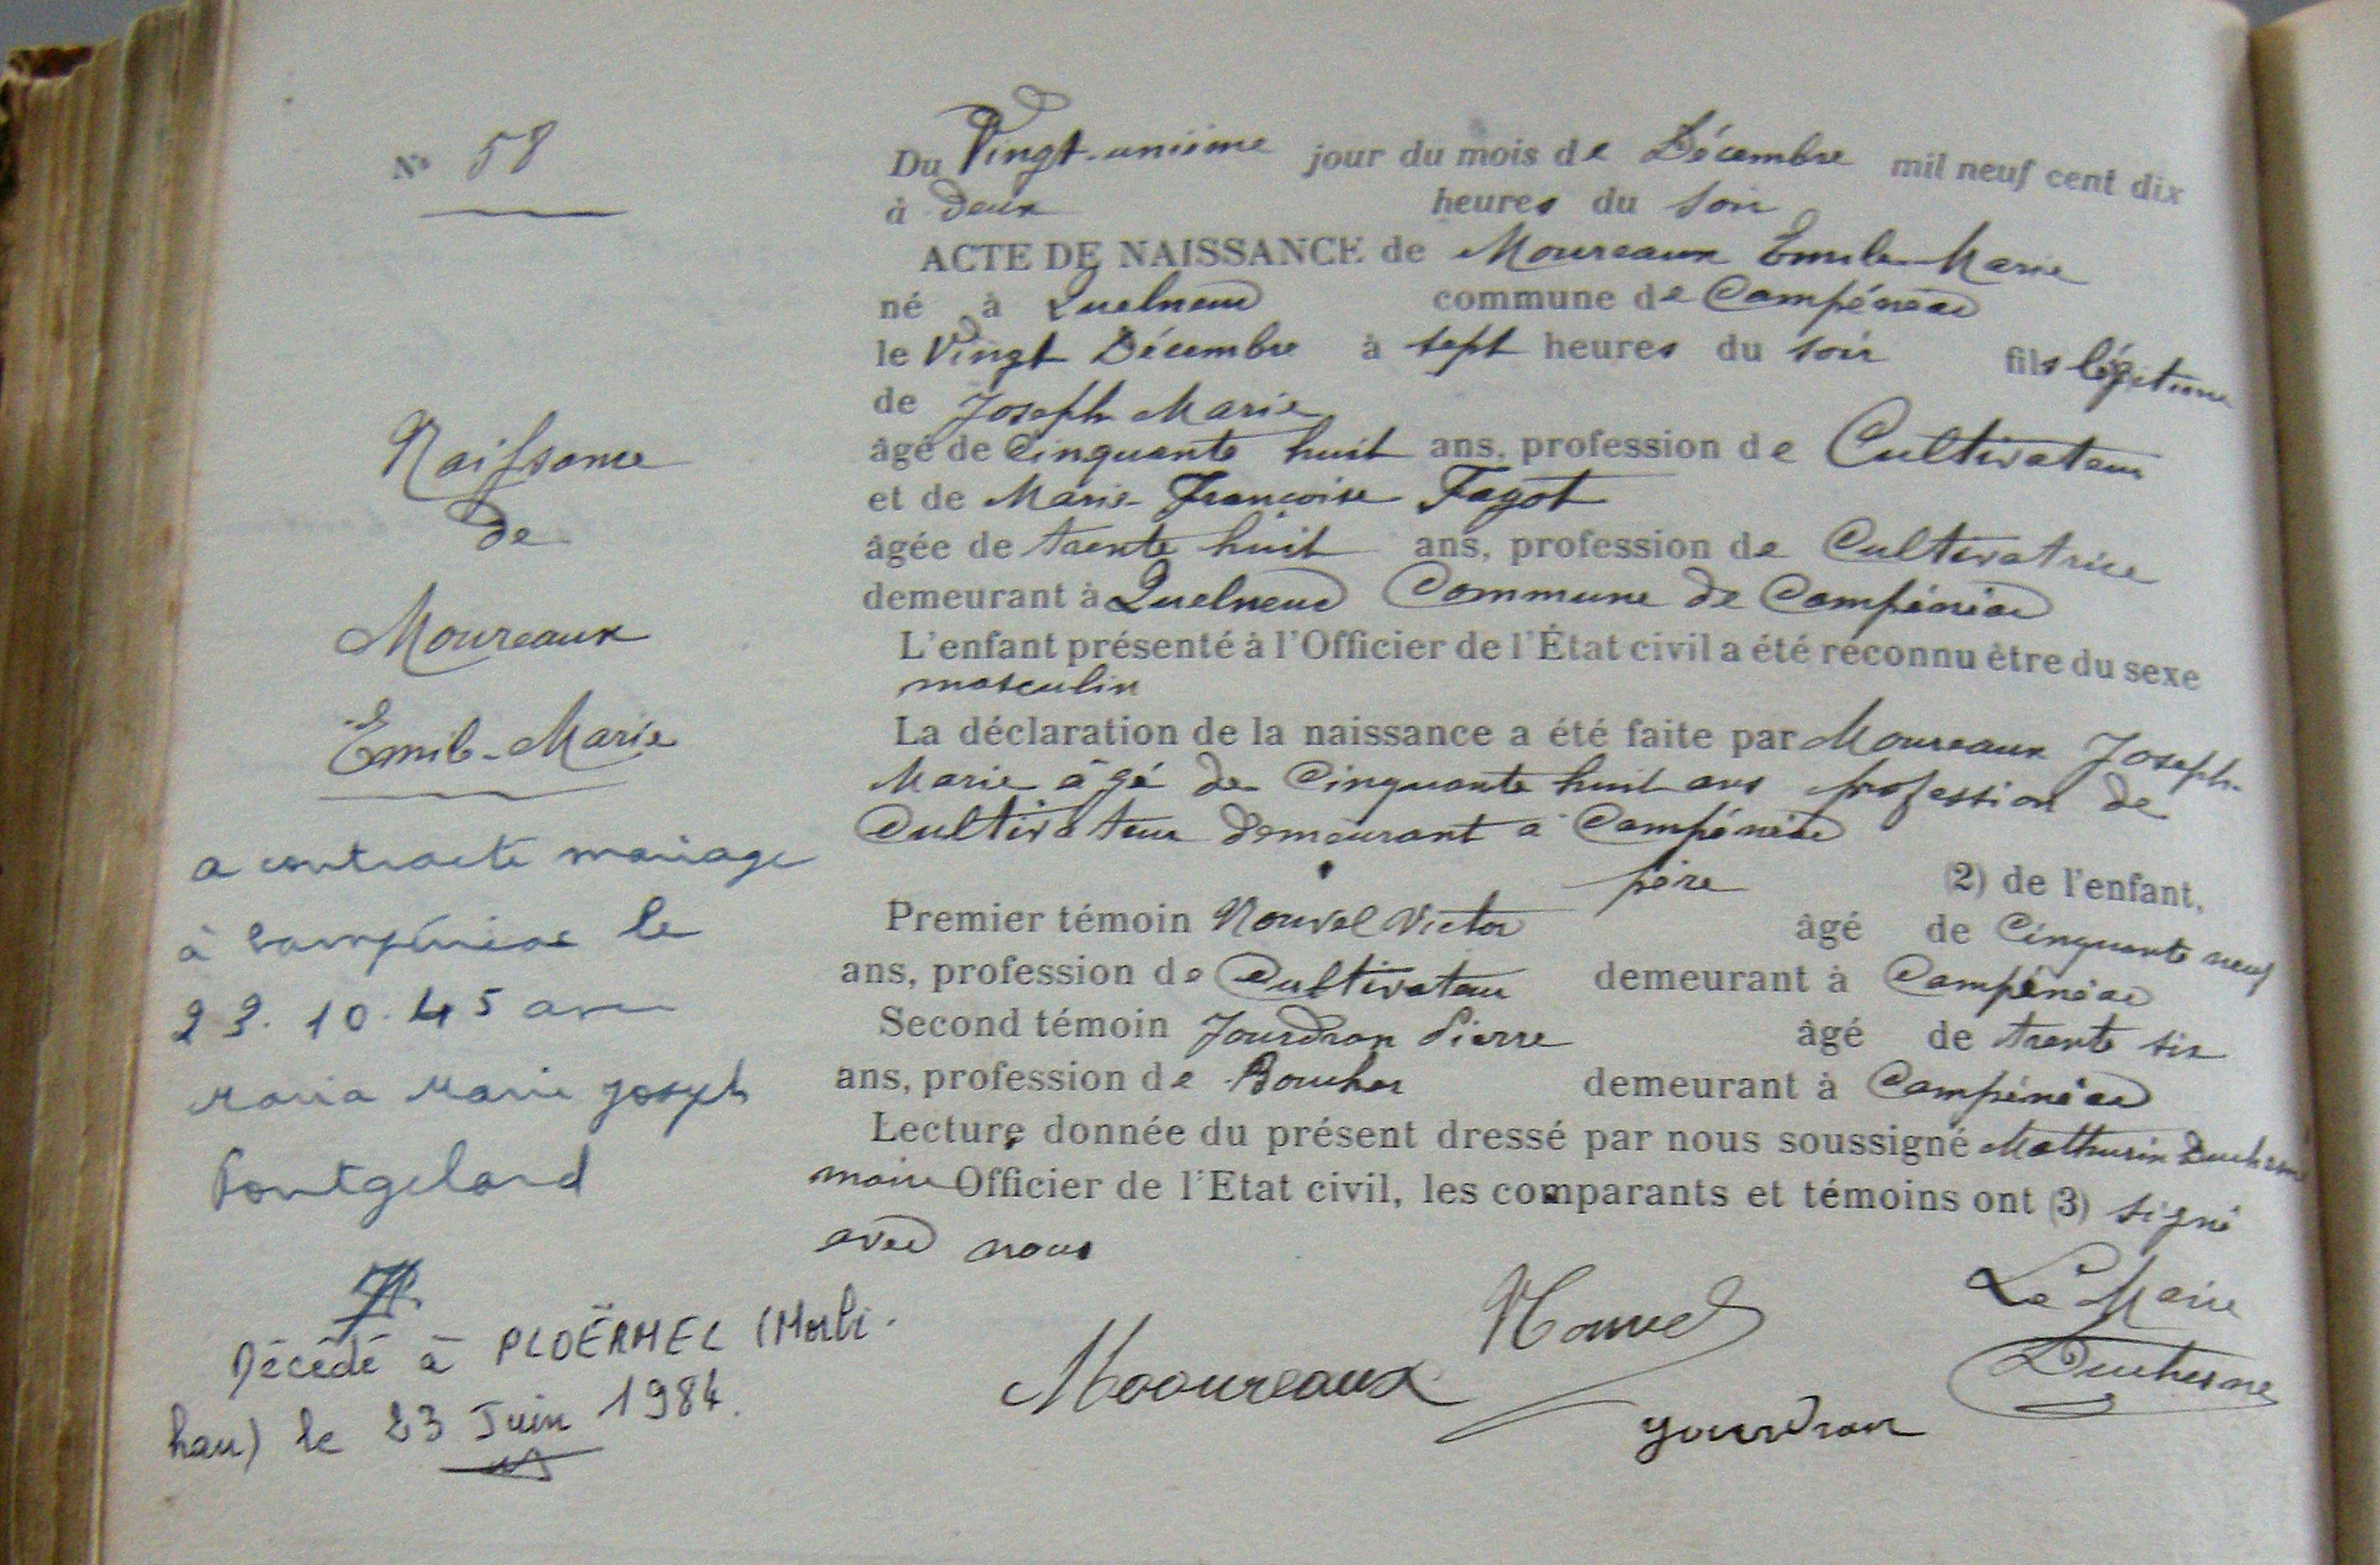 N° 58
Naissance
de
Moureaux
Emile-Marie
a contracté mariage
à Campénéac le
23.10.45 avec
Maria Marie Joseph
Pontgelard
Décédé à PLOËRMEL (Morbi-
han) le 23 Juin 1984.
Du Vingt-unième jour du mois de Décembre mil neuf cent dix
à deux heures du soir
ACTE DE NAISSANCE de Moureaux Emile-Marie
né à Quelneuc commune de Campénéac
le Vingt Décembre à sept heures du soir fils légitime
de Joseph Marie
âgé de Cinquante huit ans, profession de Cultivateur
et de Marie-Françoise Fagot
âgée de trente huit ans, profession de Cultivatrice
demeurant à Quelneuc Commune de Campénéac
L'enfant présenté à l'Officier de l'État civil a été reconnu être du sexe
masculin
La déclaration de la naissance a été faite par Moureaux Joseph-
Marie âgé de Cinquante huit ans profession de
Cultivateur demeurant à Campénéac
père (2) de l'enfant.
Premier témoin Nouvel Victor âgé de Cinquante neuf
ans, profession de Cultivateur demeurant à Campénéac
Second témoin Jourdran Pierre âgé de trente six
ans, profession de Boucher demeurant à Campénéac
Lecture donnée du présent dressé par nous soussigné Mathurin Duchesne
maire Officier de l'Etat civil, les comparants et témoins ont (3) signé
avec nous
Le Maire
Nouvel
Mooureaux
Duchesne
Jourdran